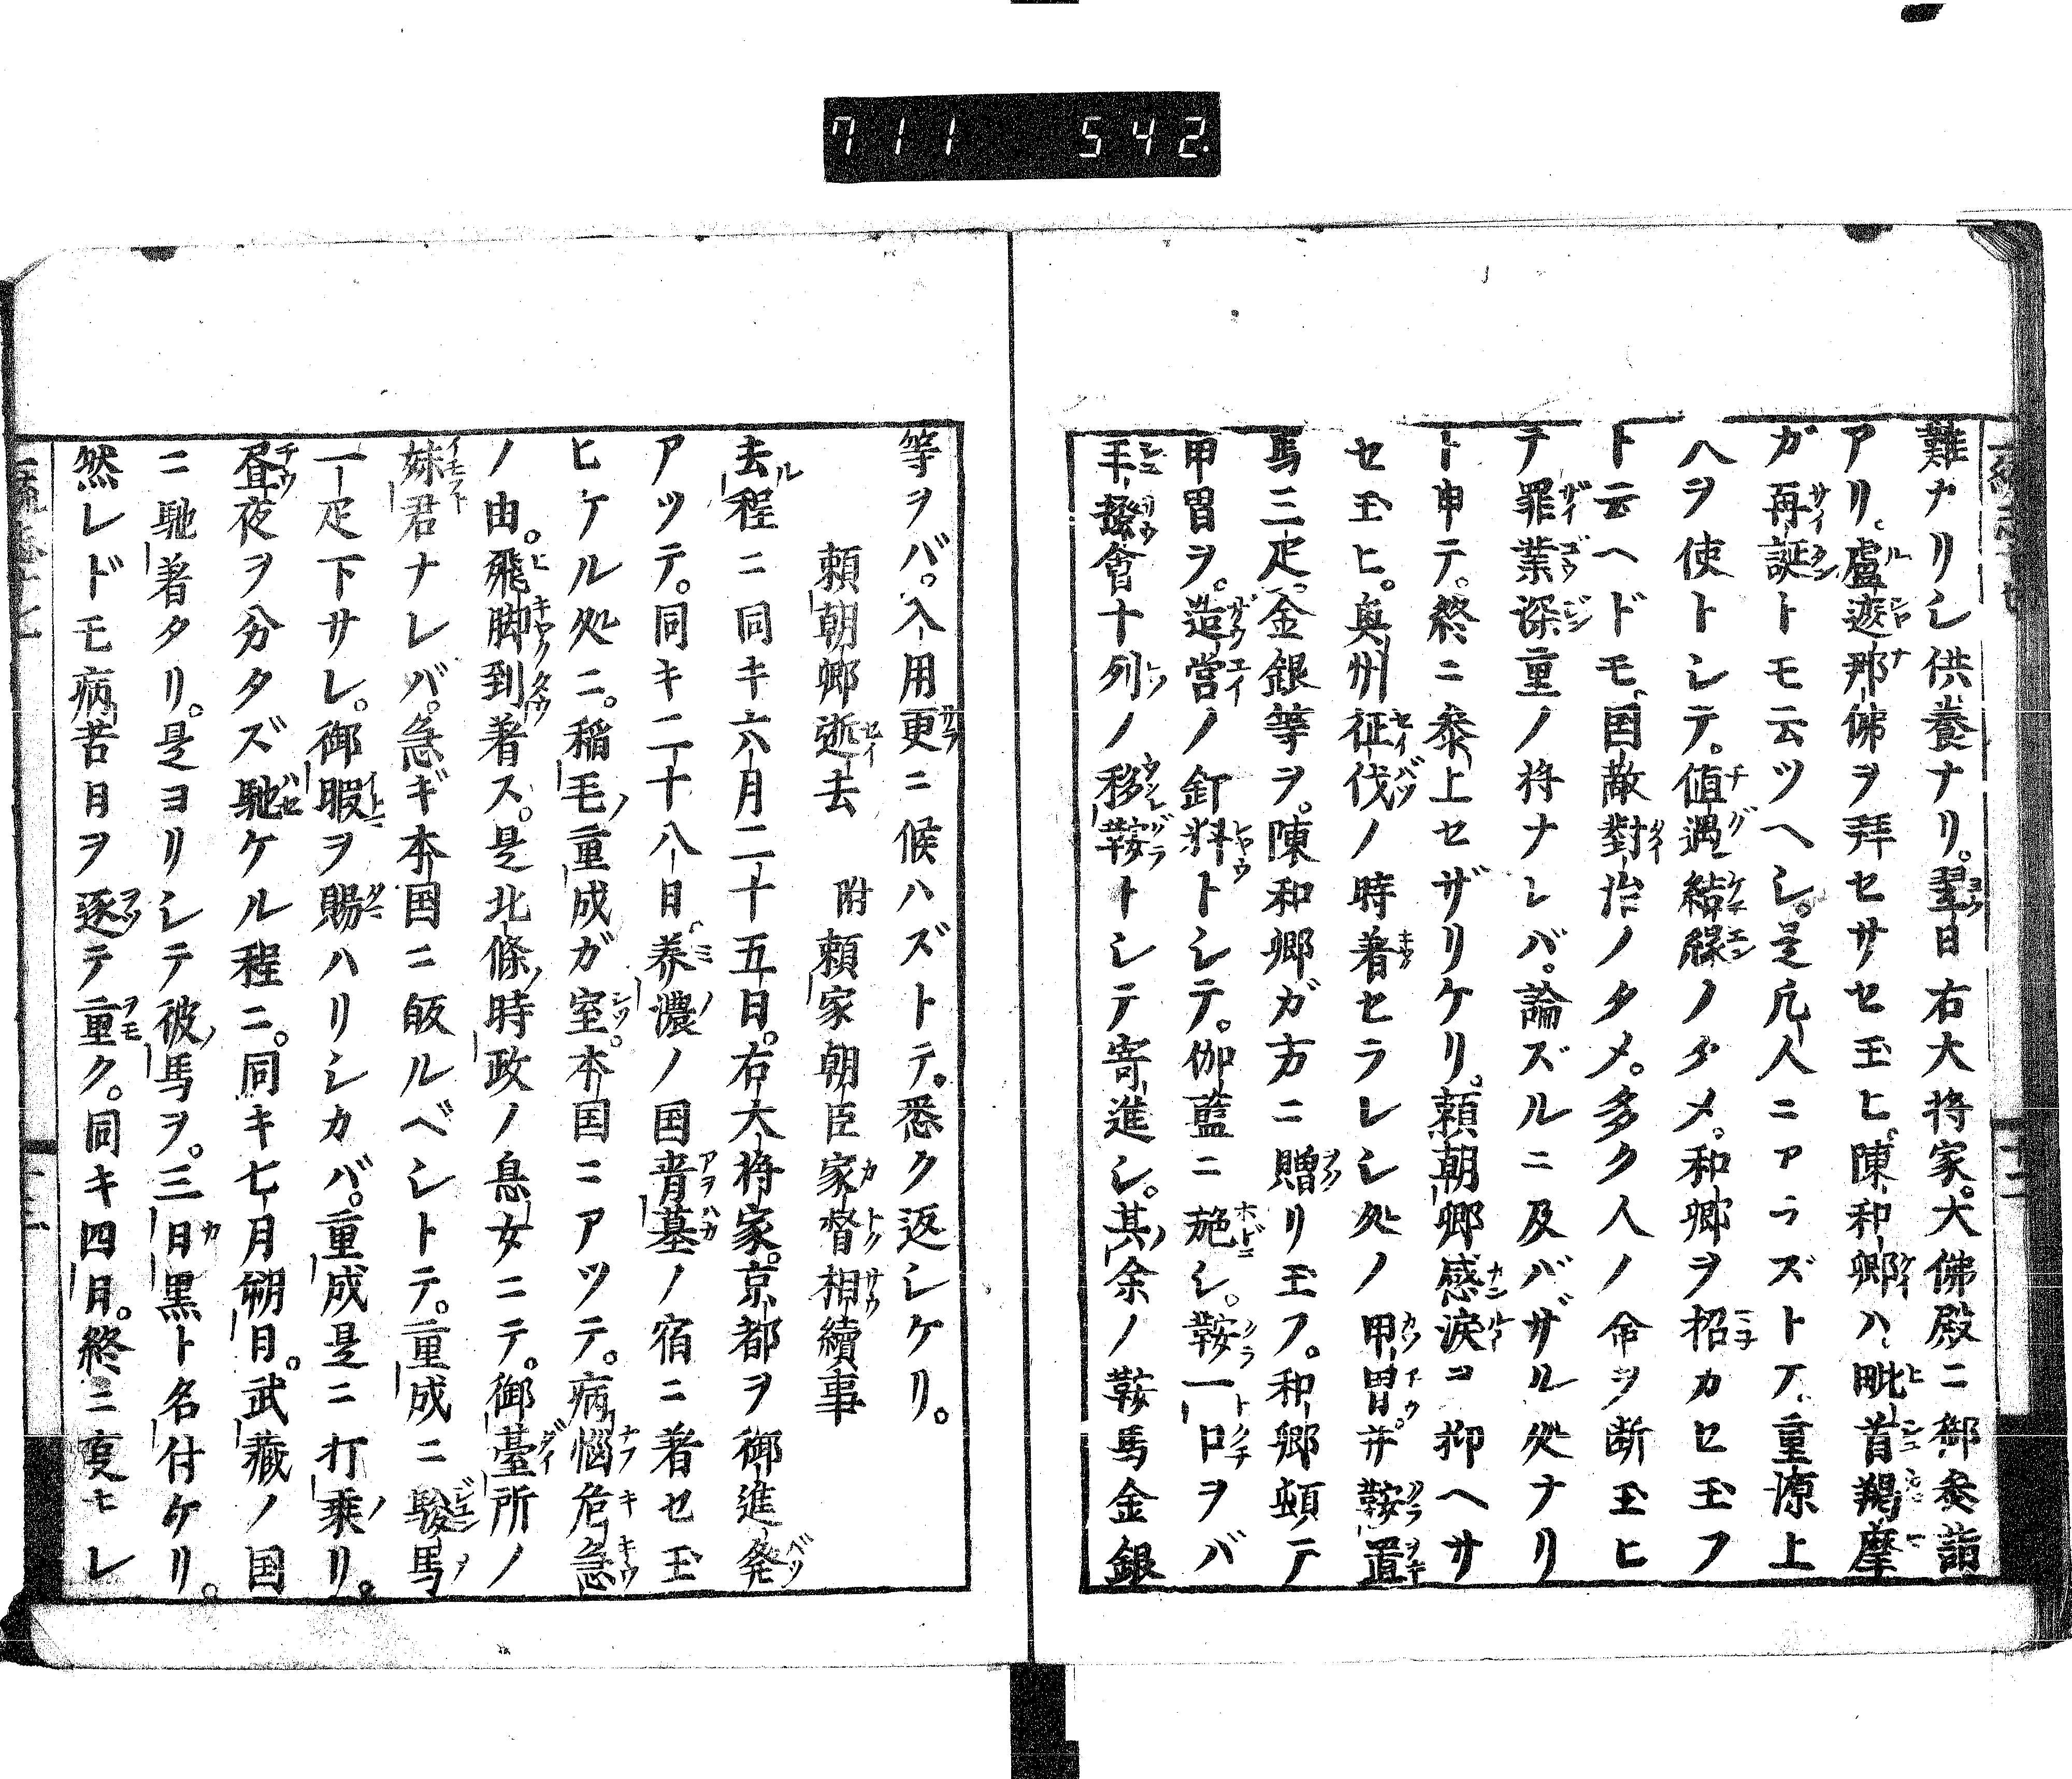 711 542
難ナリシ供養ナリ。翌日右大将家。大佛殿ニ御参詣
アリ。盧遮那佛ヲ拜セサセ玉ヒ。陳和卿ハ。毗首羯摩
ガ再誕トモ云ツヘシ。是凡人ニアラズトテ。重源上
人ヲ使トシテ。値遇結縁ノタメ。和卿ヲ招カセ玉フ
ト云ヘドモ。国敵對治ノタメ。多ク人ノ命ヲ断玉ヒ
テ罪業深重ノ将ナレバ。論ズルニ及バザル処ナリ
ト申テ。終ニ参上セザリケリ。頼朝卿感涙ヲ抑ヘサ
セ玉ヒ。奥州征伐ノ時着セラレシ処ノ甲冑。并鞍置
馬三疋。金銀等ヲ。陳和卿ガ方ニ贈リ玉フ。和卿頓テ
甲冑ヲ。造営ノ釘料トシテ。伽藍ニ施シ。鞍一口ヲバ
手掻會十列ノ移鞍トシテ寄進シ。其余ノ鞍馬金銀
等ヲバ。入用更ニ候ハズトテ。悉ク返シケリ。
頼朝卿逝去 附 頼家朝臣家督相續事
去程ニ同キ六月二十五日。右大将家。京都ヲ御進発
アツテ。同キ二十八日。养濃ノ国青墓ノ宿ニ着セ玉
ヒケル処ニ。稲毛重成ガ室。本国ニアツテ。病悩危急
ノ由。飛脚到着ス。是北條時政ノ息女ニテ。御臺所ノ
妹君ナレバ。急ギ本国ニ皈ルベシトテ。重成ニ駿馬
一疋下サレ。御暇ヲ賜ハリシカバ。重成是ニ打乘リ。
昼夜ヲ分タズ馳ケル程ニ。同キ七月朔日。武藏ノ国
ニ馳着タリ。是ヨリシテ彼馬ヲ。三日黒ト名付ケリ。
然レドモ病苦日ヲ逐テ重ク。同キ四日。終ニ卒セレ